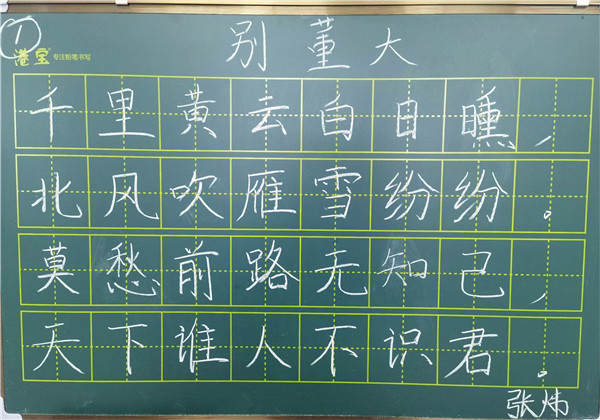 ①
港宝 专注粉笔书写
别董大
千里黄云白日曛，
北风吹雁雪纷纷。
莫愁前路无知己，
天下谁人不识君。
张炜